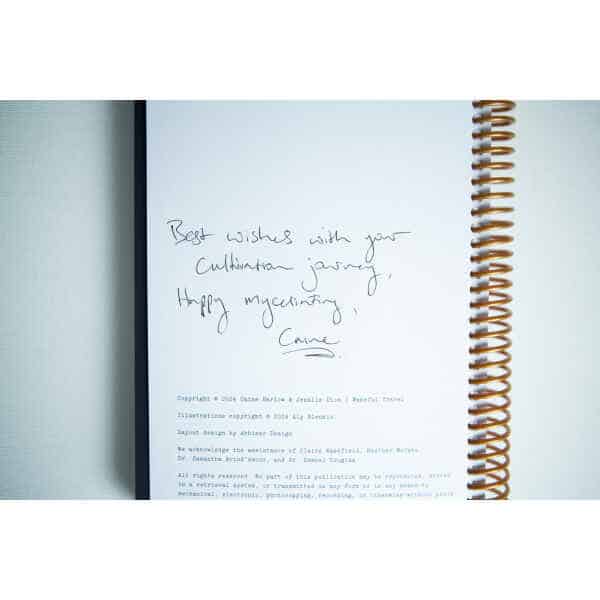 Best wishes with your
Cultivation journey,
Happy myceliating,
Caine
Copyright © 2024 Caine Barlow & Jenalle Dion | Fanciful Fungi
Illustrations copyright © 2024 Aly Blenkin
Layout design by Design
We acknowledge the assistance of Claire Wakefield, Heather McCabe
Dr. Samantha and Dr. Samuel
All rights reserved. No part of this publication may be reproduced, stored
in a retrieval system, or transmitted in any form or by any means—
mechanical, electronic, photocopying, recording, or otherwise—without prior